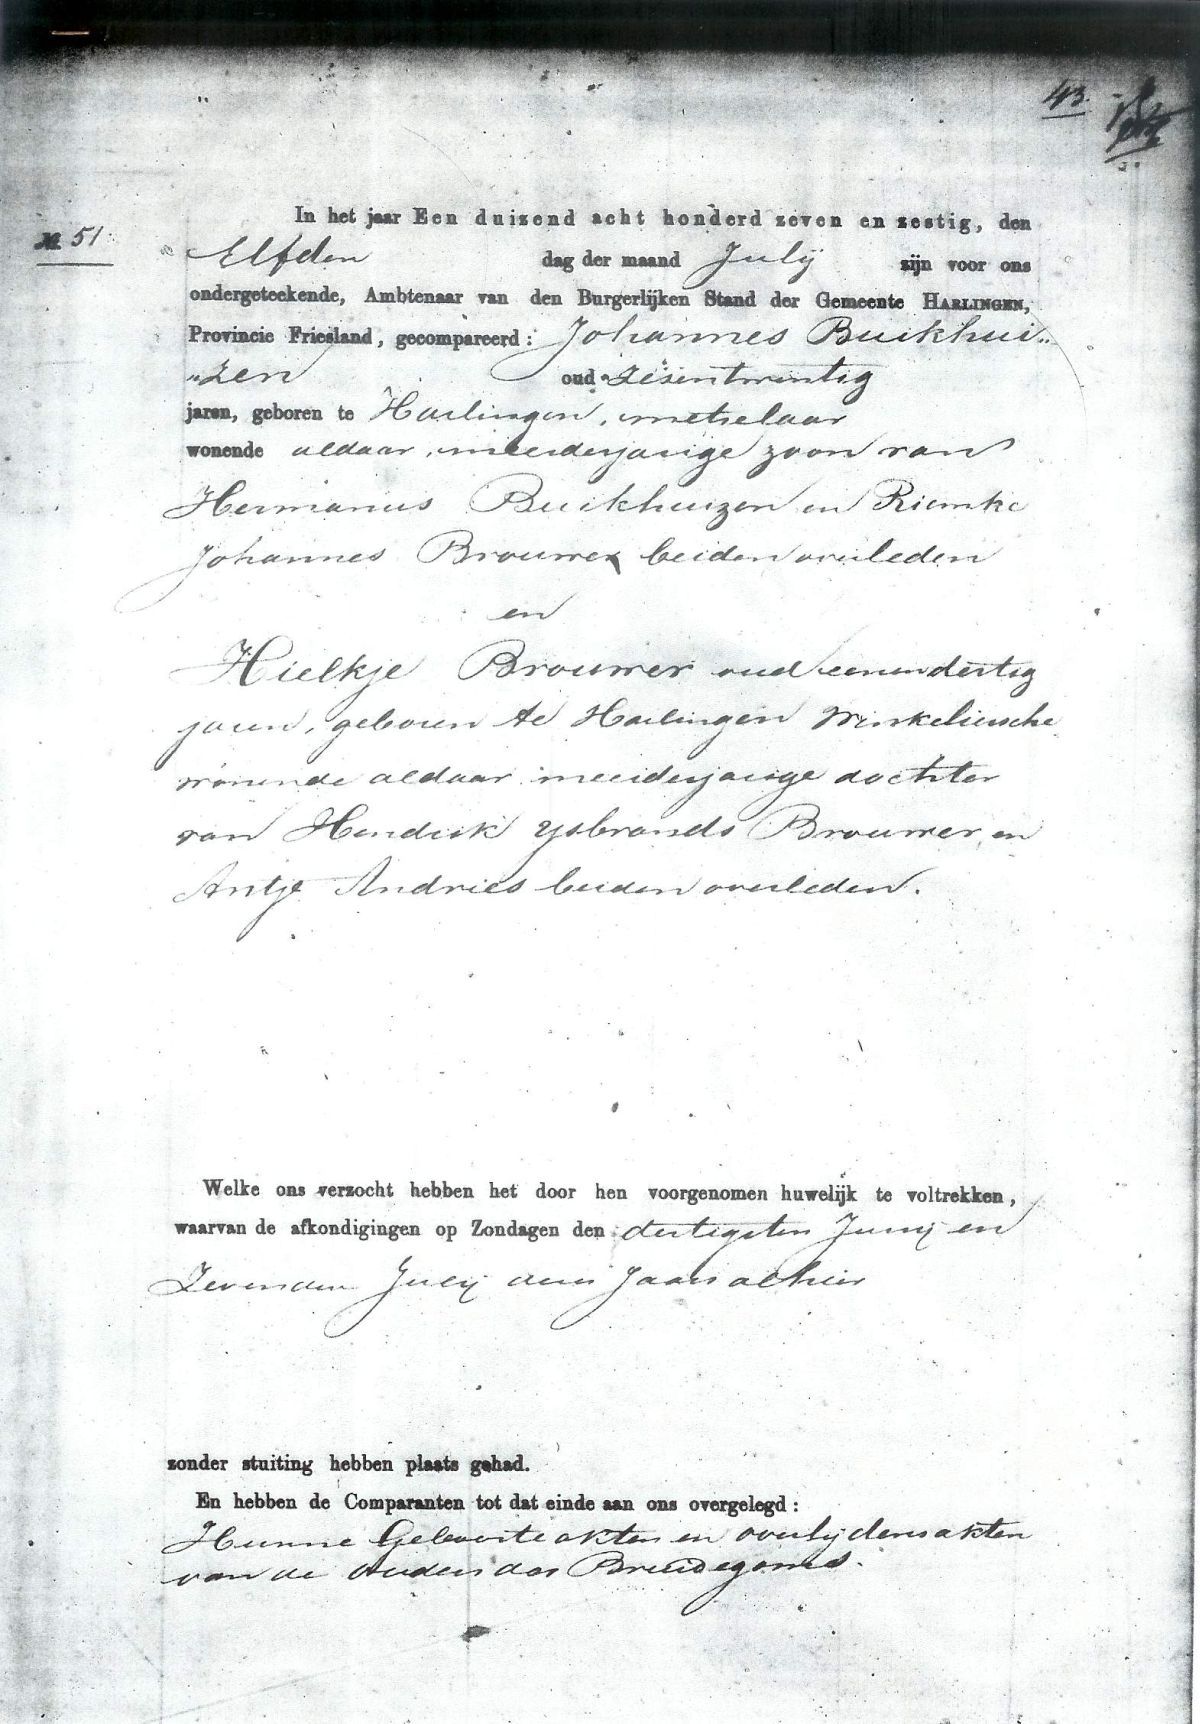 43.
№ 51
In het jaar Een duizend acht honderd zeven en zestig, den
Elfden dag der maand July zijn voor ons
ondergeteekende, Ambtenaar van den Burgerlijken Stand der Gemeente HARLINGEN,
Provincie Friesland, gecompareerd: Johannes Buikhui„
„zen oud zesentwintig
jaren, geboren te Harlingen, metselaar
wonende aldaar, meerderjarige zoon van
Hermanus Buikhuizen en Riemke
Johannes Brouwer beiden overleden
en
Hielkje Brouwer oud eenendertig
jaren, geboren te Harlingen Winkeliersche
wonende aldaar meerderjarige dochter
van Hendrik Ysbrands Brouwer en
Antje Andries beiden overleden.
Welke ons verzocht hebben het door hen voorgenomen huwelijk te voltrekken,
waarvan de afkondigingen op Zondagen den dertigsten Junij en
Zevenden July dezes Jaars alhier
zonder stuiting hebben plaats gehad.
En hebben de Comparanten tot dat einde aan ons overgelegd:
Hunne Geboorteakten en overlijdensakten
van de ouders des Bruidegoms.